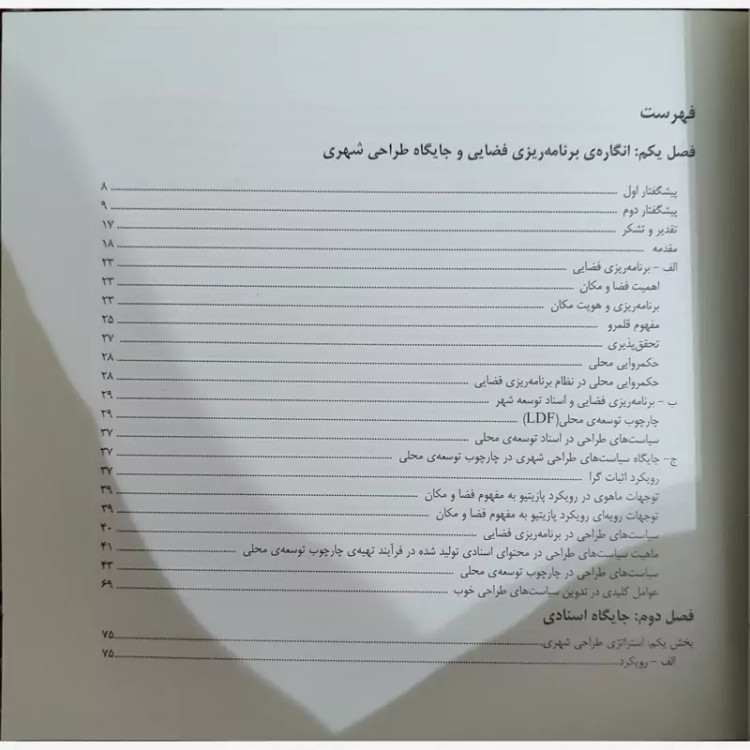 فهرست
فصل یکم: انگاره‌ی برنامه‌ریزی فضایی و جایگاه طراحی شهری
پیشگفتار اول ۸
پیشگفتار دوم ۹
تقدیر و تشکر ۱۷
مقدمه ۱۸
الف - برنامه‌ریزی فضایی ۲۳
اهمیت فضا و مکان ۲۳
برنامه‌ریزی و هویت مکان ۲۳
مفهوم قلمرو ۲۵
تحقق‌پذیری ۲۷
حکمروایی محلی ۲۸
حکمروایی محلی در نظام برنامه‌ریزی فضایی ۲۸
ب - برنامه‌ریزی فضایی و اسناد توسعه شهر ۲۹
چارچوب توسعه‌ی محلی(LDF) ۲۹
سیاست‌های طراحی در اسناد توسعه‌ی محلی ۳۷
ج- جایگاه سیاست‌های طراحی شهری در چارچوب توسعه‌ی محلی ۳۷
رویکرد اثبات گرا ۳۷
توجهات ماهوی در رویکرد پازیتیو به مفهوم فضا و مکان ۳۹
توجهات رویه‌ای رویکرد پازیتیو به مفهوم فضا و مکان ۳۹
سیاست‌های طراحی در برنامه‌ریزی فضایی ۴۰
ماهیت سیاست‌های طراحی در محتوای اسنادی تولید شده در فرآیند تهیه‌ی چارچوب توسعه‌ی محلی ۴۱
سیاست‌های طراحی در چارچوب توسعه‌ی محلی ۴۳
عوامل کلیدی در تدوین سیاست‌های طراحی خوب ۶۹
فصل دوم: جایگاه اسنادی
بخش یکم: استراتژی طراحی شهری ۷۵
الف - رویکرد ۷۵